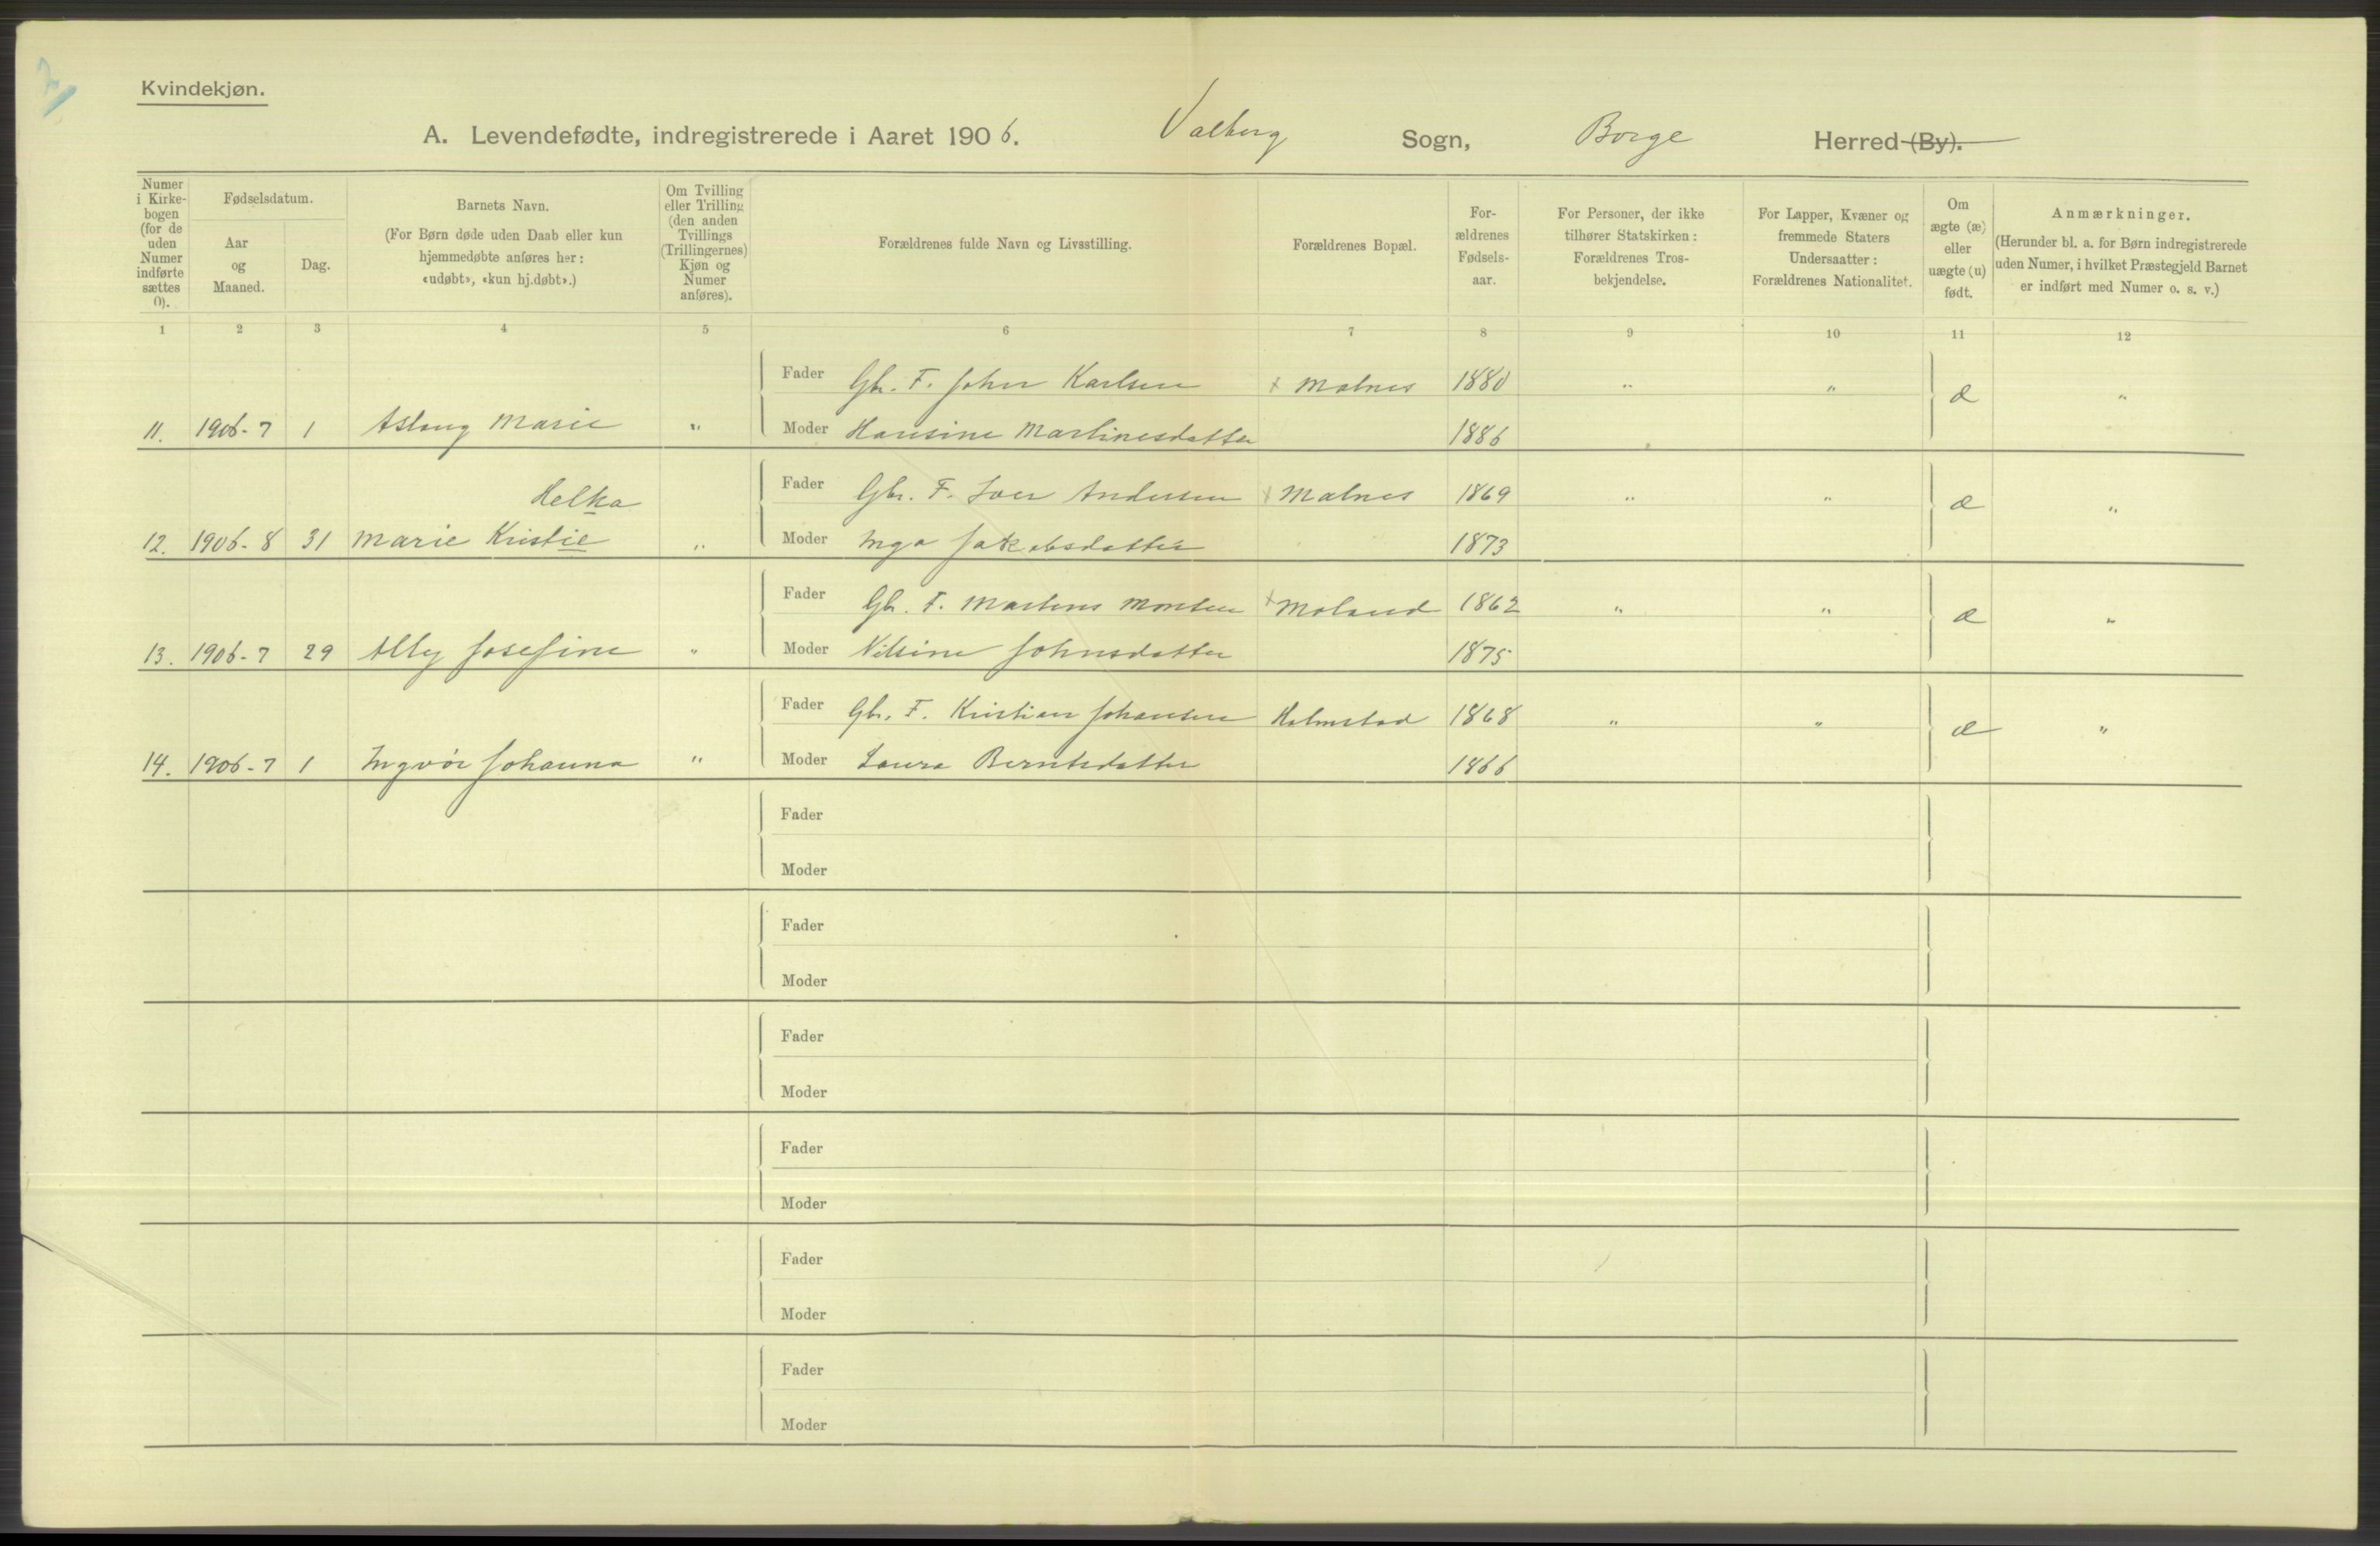 Kvindekjøn.
A. Levendefødte, indregistrerede i Aaret 1906. Valberg Sogn, Borge Herred (By).
Numer i Kirkebogen (for de uden Numer indførte sættes 0).
Fødselsdatum.
Aar og Maaned.
Dag.
Barnets Navn.
(For Børn døde uden Daab eller kun hjemmedøbte anføres her: «udøbt», «kun hj.døbt».)
Om Tvilling eller Trilling (den anden Tvillings (Trillingernes) Kjøn og Numer anføres).
Forældrenes fulde Navn og Livsstilling.
Forældrenes Bopæl.
Forældrenes Fødselsaar.
For Personer, der ikke tilhører Statskirken: Forældrenes Trosbekjendelse.
For Lapper, Kvæner og fremmede Staters Undersaatter: Forældrenes Nationalitet.
Om ægte (æ) eller uægte (u) født.
Anmærkninger.
(Herunder bl. a. for Børn indregistrerede uden Numer, i hvilket Præstegjeld Barnet er indført med Numer o. s. v.)
1 2 3 4 5 6 7 8 9 10 11 12
Fader Gbr. F. John Karlsen x Malnes 1880 " " æ "
11. 1906-7 1 Aslaug Marie " Moder Hansine Martinesdatter 1886
Helka Fader Gbr. F. Iver Andersen x Malnes 1869 " " æ "
12. 1906-8 31 Marie Kristie " Moder Inga Jakobsdatter 1873
Fader Gbr. F. Martens Monsen x Moland 1862 " " æ "
13. 1906-7 29 Ally Josefine " Moder Nilsine Johnsdatter 1875
Fader Gbr. F. Kristian Johansen Holmstad 1868 " " æ "
14. 1906-7 1 Ingvör Johanna " Moder Laura Berntsdatter 1866
Fader
Moder
Fader
Moder
Fader
Moder
Fader
Moder
Fader
Moder
Fader
Moder